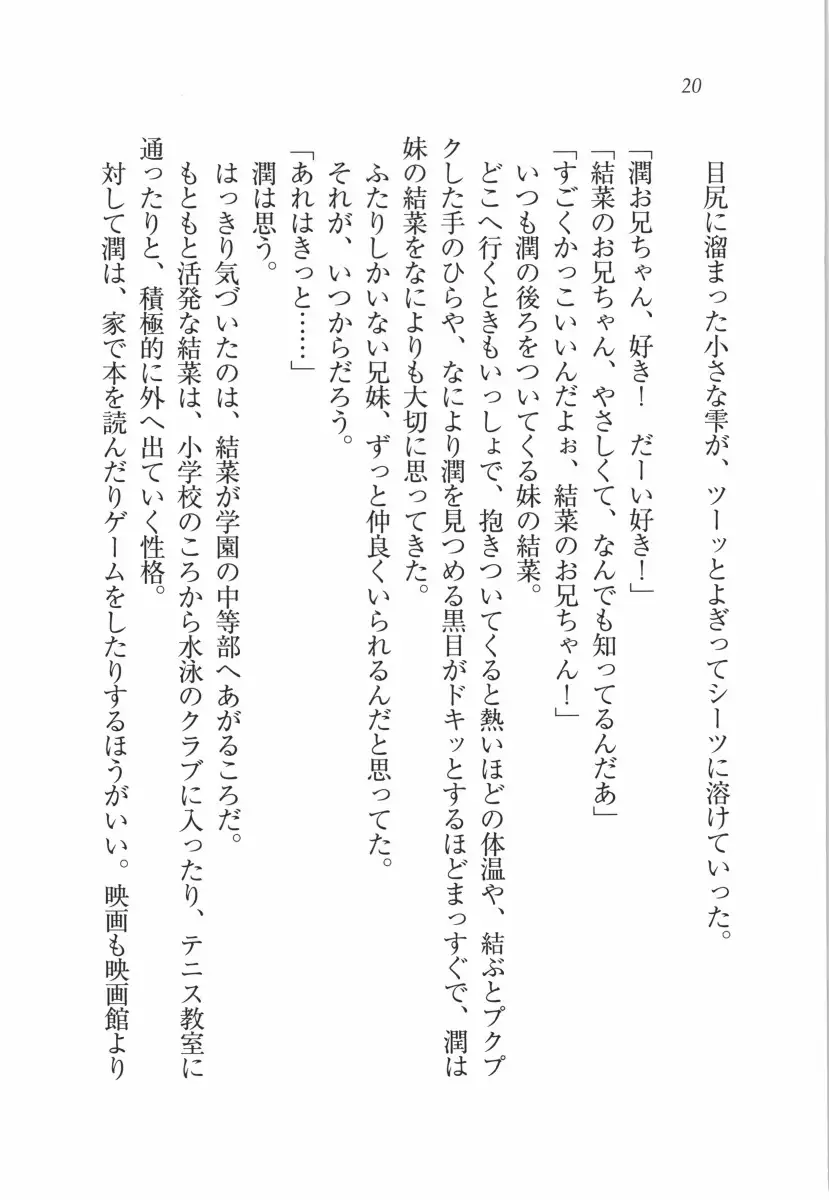 20
目尻に溜まった小さな雫が、ツーッとよぎってシーツに溶けていった。
「潤お兄ちゃん、好き！　だーい好き！」
「結菜のお兄ちゃん、やさしくて、なんでも知ってるんだあ」
「すごくかっこいいんだよぉ、結菜のお兄ちゃん！」
いつも潤の後ろをついてくる妹の結菜。
どこへ行くときもいっしょで、抱きついてくると熱いほどの体温や、結ぶとプクプ
クした手のひらや、なにより潤を見つめる黒目がドキッとするほどまっすぐで、潤は
妹の結菜をなによりも大切に思ってきた。
ふたりしかいない兄妹、ずっと仲良くいられるんだと思ってた。
それが、いつからだろう。
「あれはきっと……」
潤は思う。
はっきり気づいたのは、結菜が学園の中等部へあがるころだ。
もともと活発な結菜は、小学校のころから水泳のクラブに入ったり、テニス教室に
通ったりと、積極的に外へ出ていく性格。
対して潤は、家で本を読んだりゲームをしたりするほうがいい。映画も映画館より